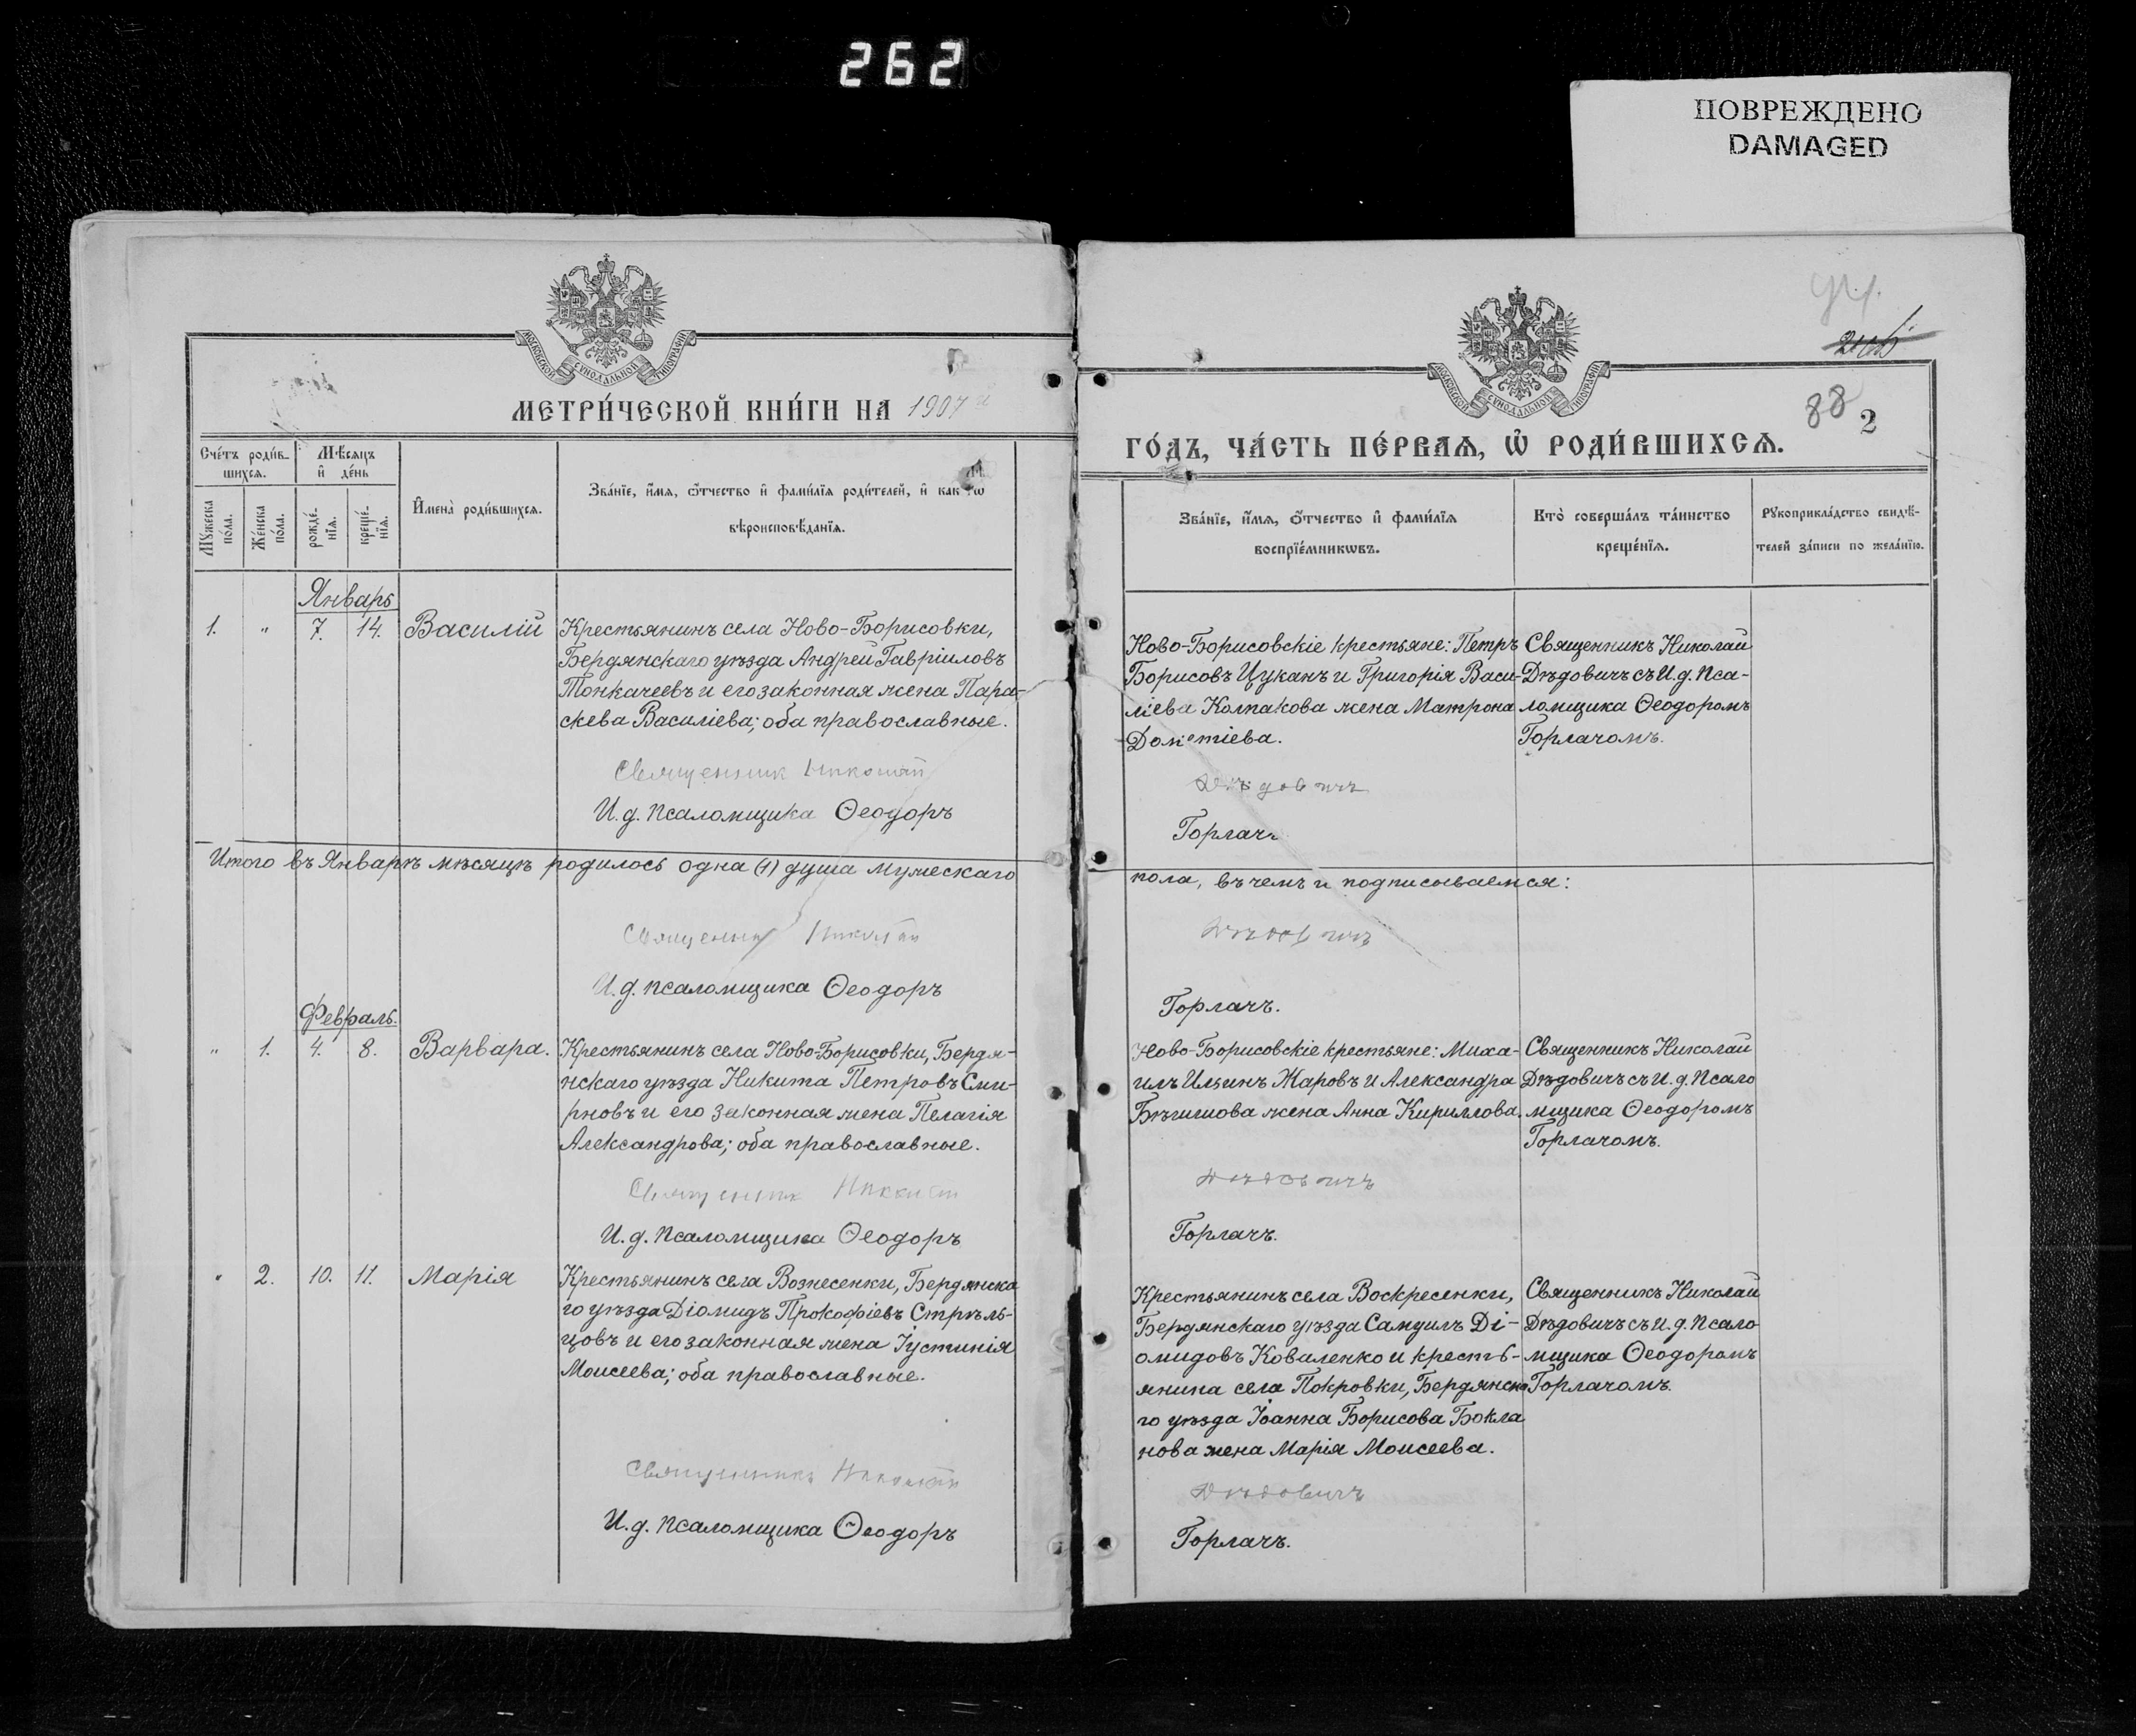 262
ПОВРЕЖДЕНО
DAMAGED
МОСКОВСКОЙ СѴНОДАЛЬНОЙ ТИПОГРАФІИ
МЕТРИ́ЧЕСКОЙ КНИ́ГИ НА 1907
Сче́тъ роди́в-
шихсѧ.
Мѣ́сѧцъ
и҆ де́нь
Мꙋ́жеска
по́ла.
Же́нска
по́ла.
рожде́-
нїѧ.
креще́-
нїѧ.
И҆мена̀ роди́вшихсѧ.
Зва́нїе, и҆́мѧ, ѻ҆́тчество и҆ фамѝлїѧ роди́телей, и҆ как
вѣроисповѣ́данїѧ.
Январь
1. " 7. 14. Василій
Крестьянинъ села Ново-Борисовки,
Бердянскаго уѣзда Андрей Гавріиловъ
Тонкачеевъ и его законная жена Пара-
скева Василіева; оба православные.
Священник Николай
И. д. псаломщика Ѳеодоръ
Итого въ Январѣ мѣсяцѣ родилось одна (1) душа мужескаго
Священник Николай
И. д. псаломщика Ѳеодоръ
Февраль.
" 1. 4. 8. Варвара.
Крестьянинъ села Ново-Борисовки, Бердя-
нскаго уѣзда Никита Петровъ Сми-
рновъ и его законная жена Пелагія
Александрова; оба православные.
Священник Николай
И. д. псаломщика Ѳеодоръ
" 2. 10. 11. Марія
Крестьянинъ села Вознесенки, Бердянска
го уѣзда Діомидъ Прокофіевъ Стрѣль-
цовъ и его законная жена Іустинія
Моисеева; оба православные.
Священникъ Николай
И. д. псаломщика Ѳеодоръ
МОСКОВСКОЙ СѴНОДАЛЬНОЙ ТИПОГРАФІИ
88 2
ГО́ДЪ, ЧА́СТЬ ПЕ́РВАѦ, Ѽ РОДИ́ВШИХСѦ.
Зва́нїе, и҆́мѧ, ѻ҆́тчество и҆ фамѝлїѧ
воспрїе́мникѡвъ.
Кто̀ соверша́лъ та́инство
креще́нїѧ.
Рꙋкоприкла́дство свидѣ́-
телей за́писи по жела́нїю.
Ново-Борисовскіе крестьяне: Петръ
Борисовъ Цуканъ и Григорія Васи-
ліева Колпакова жена Матрона
Дометіева.
Священникъ Николай
Дѣдовичъ съ И. д. Пса-
ломщика Ѳеодоромъ
Горлачомъ.
Дѣдовичъ
Горлачъ
пола, въ чемъ и подписываемся:
Дѣдовичъ
Горлачъ.
Ново-Борисовскіе крестьяне: Миха-
илъ Ильинъ Жаровъ и Александра
Бѣгишова жена Анна Кириллова.
Священникъ Николай
Дѣдовичъ съ И. д. Псало
мщика Ѳеодоромъ
Горлачомъ.
Дѣдовичъ
Горлачъ.
Крестьянинъ села Воскресенки,
Бердянскаго уѣзда Самуилъ Ді-
омидовъ Коваленко и кресть-
янина села Покровки, Бердянска
го уѣзда Іоанна Борисова Бокла
нова жена Марія Моисеева.
Священникъ Николай
Дѣдовичъ съ И. д. Псало
мщика Ѳеодоромъ
Горлачомъ.
Дѣдовичъ
Горлачъ.